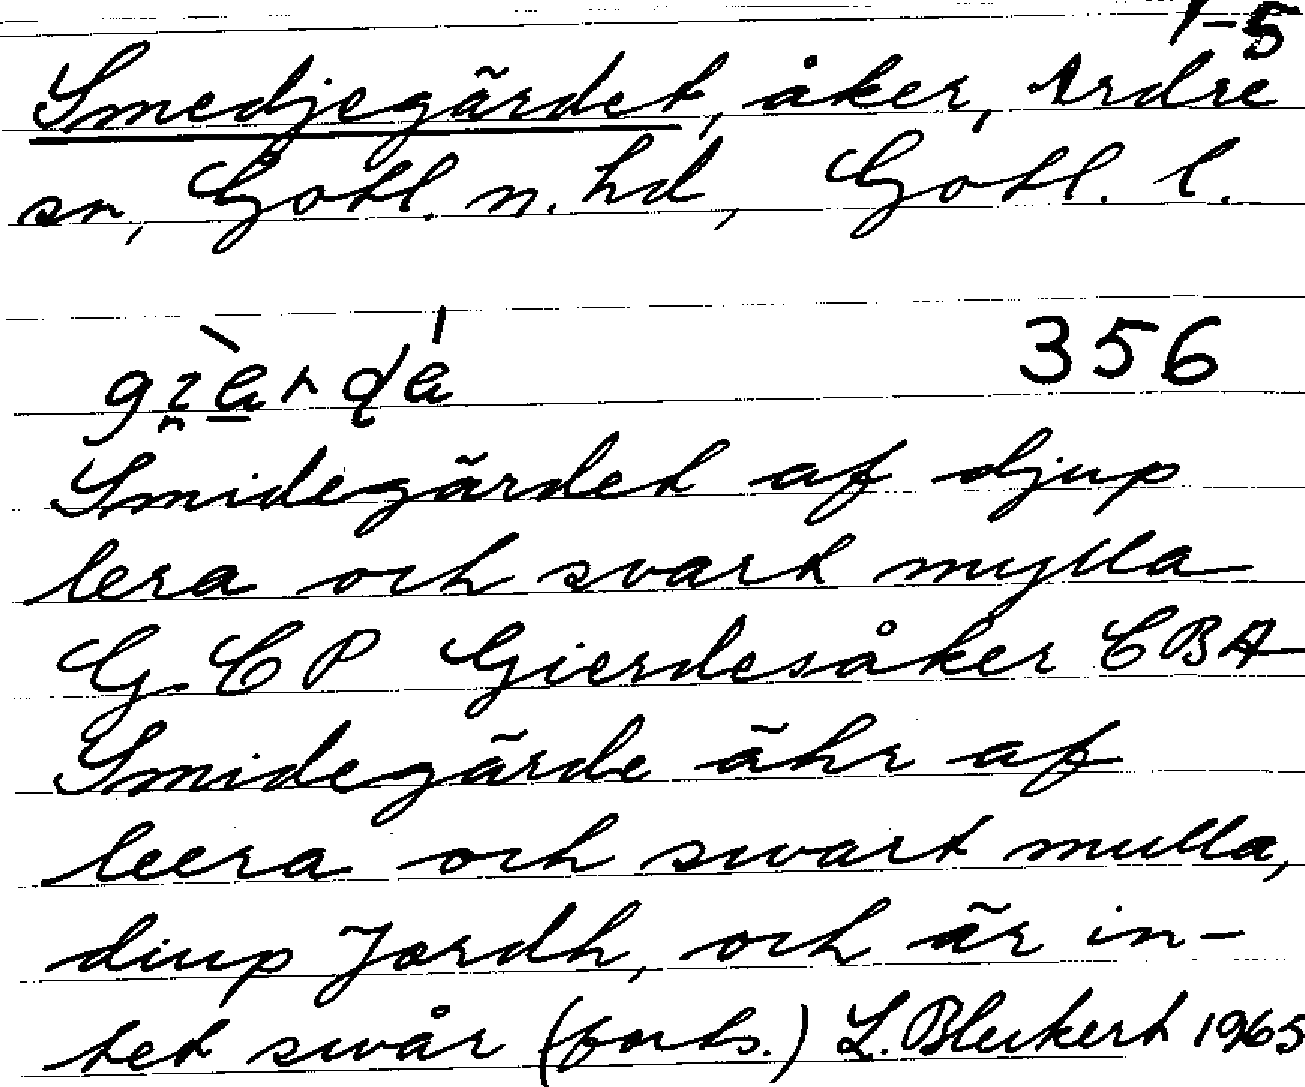 1-5
Smedjegärdet, åker, Ardre
sn, Gotl. n. hd, Gotl. l.
356
Smidegärdet af djup
lera och svart mylla
G C P Gierdesåker C B A
Smidegärde ähr af
leera och swart mulla,
diup Jordh, och är in-
tet swår (forts.) L. Bleckert 1965